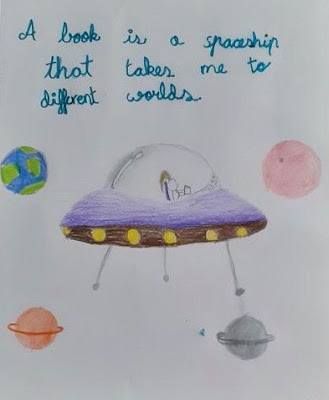 A book is a spaceship
that takes me to
different worlds